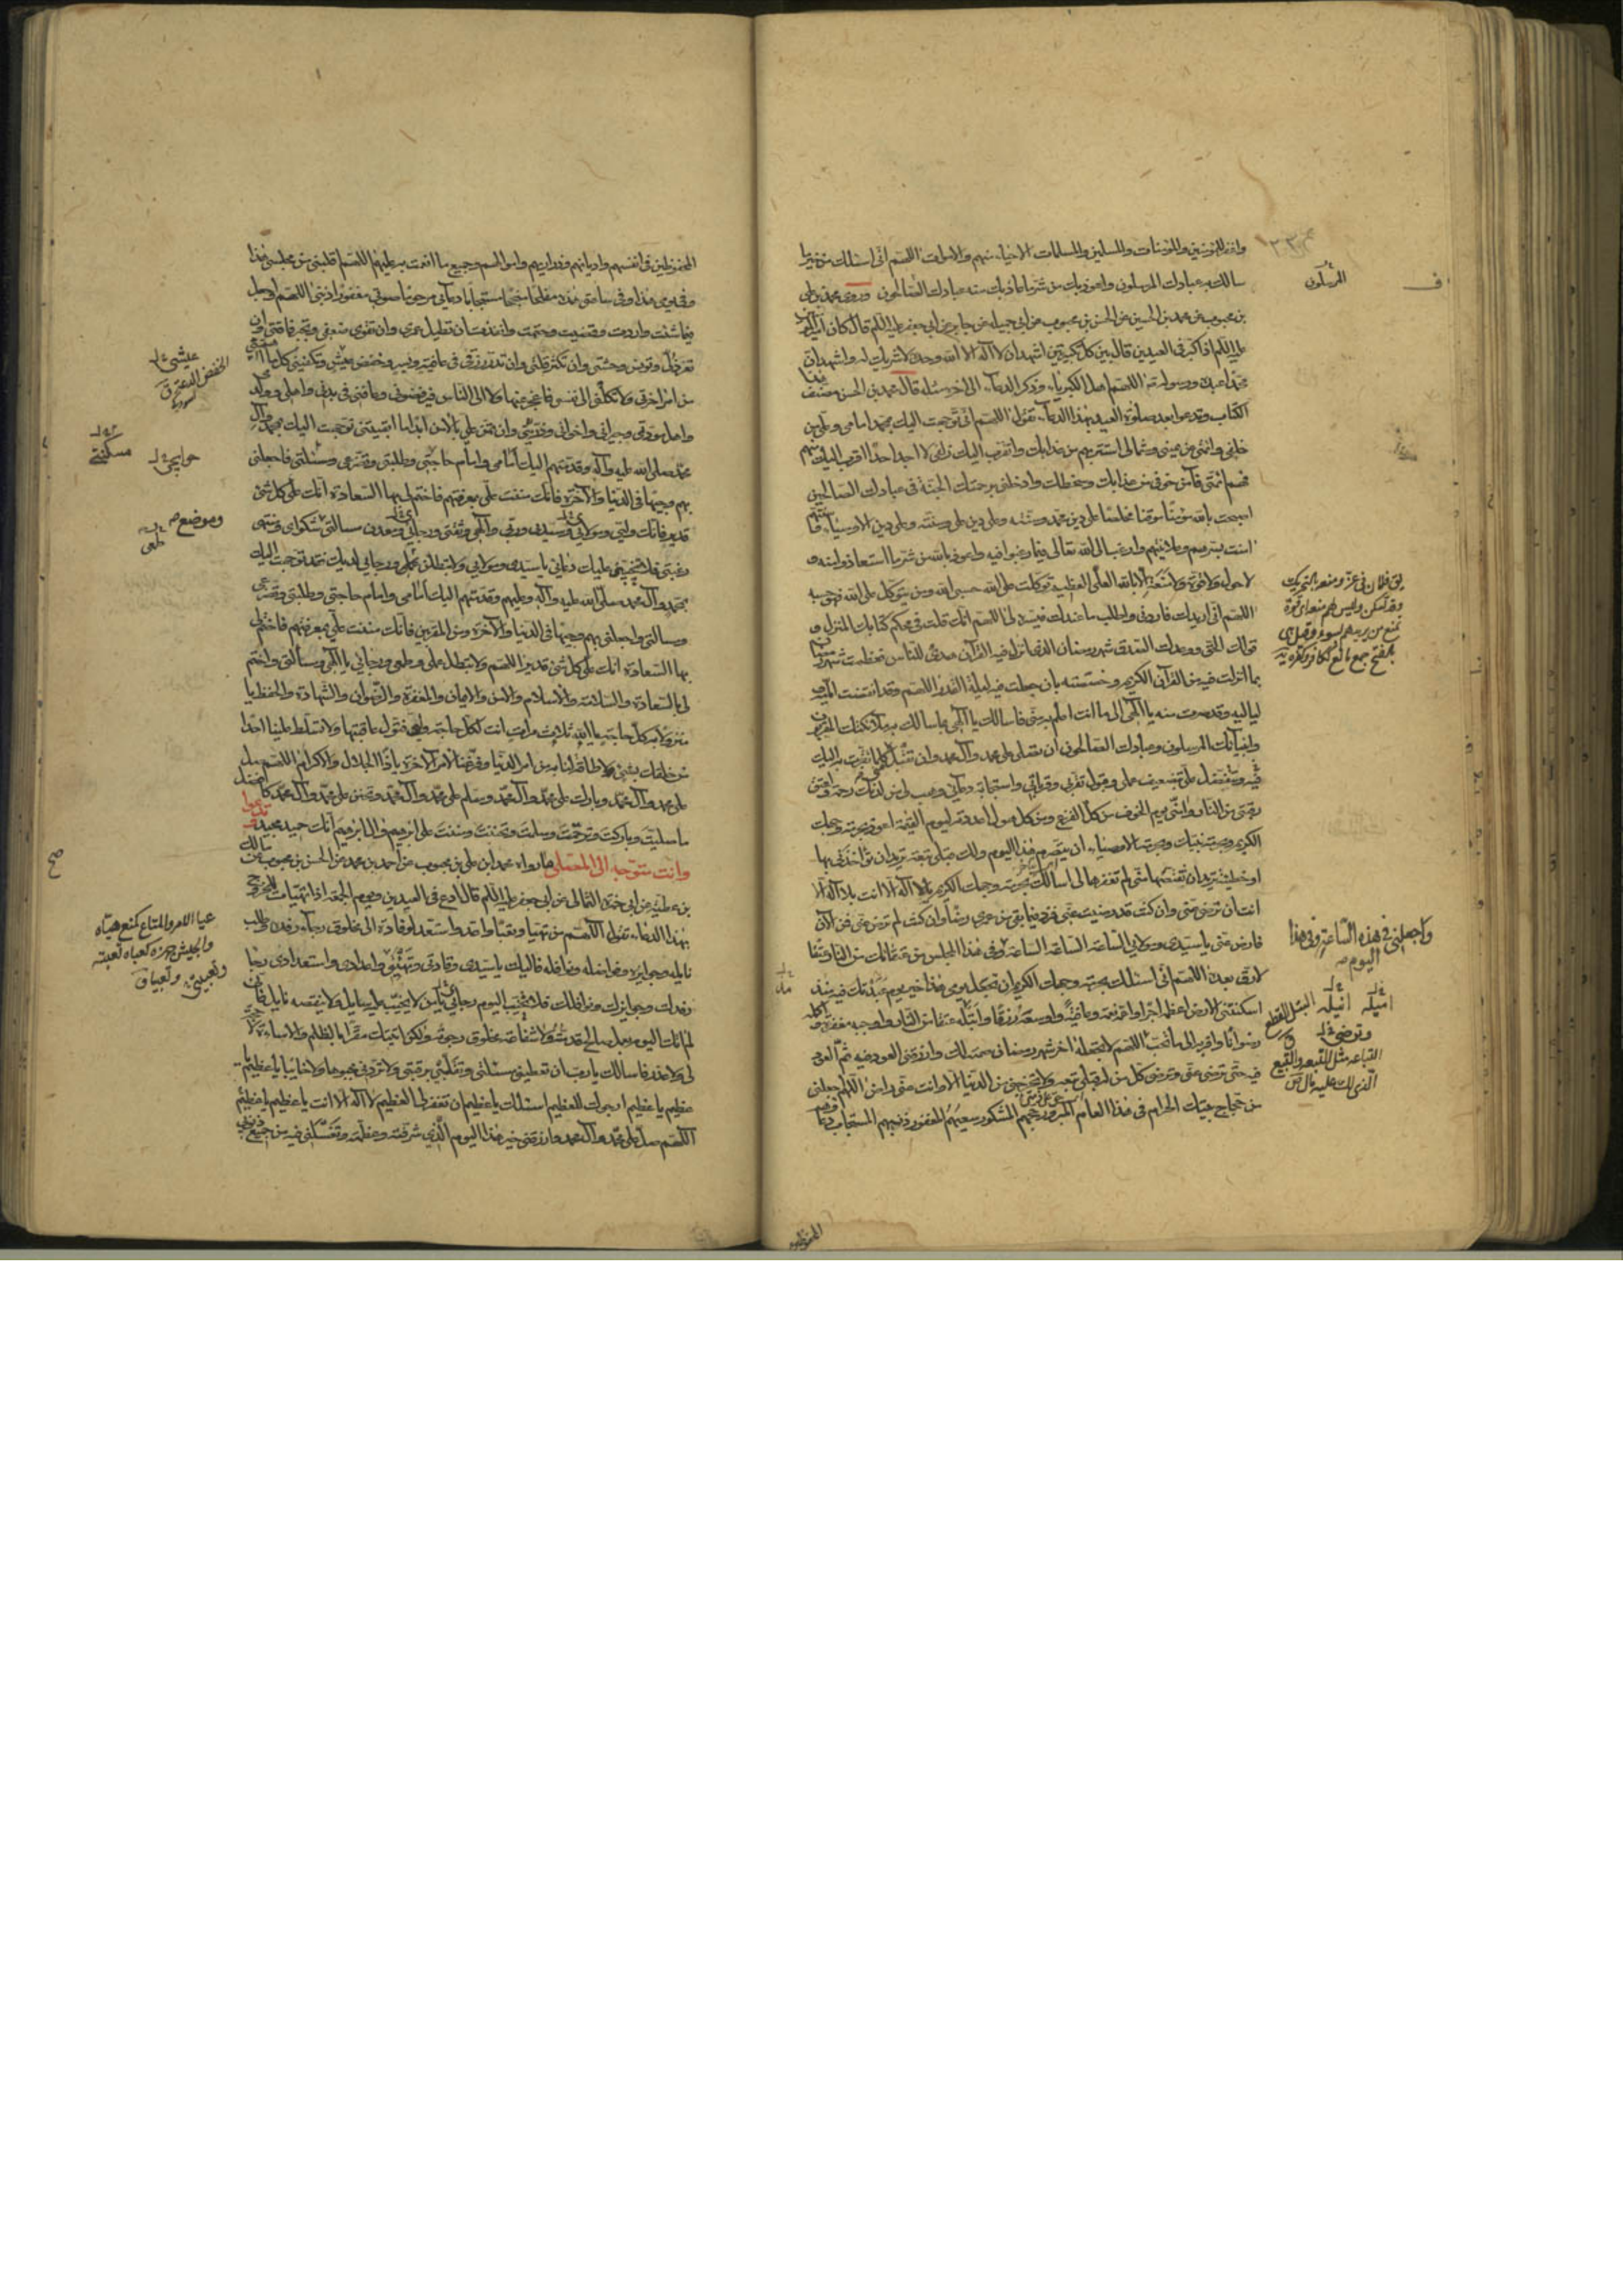 واغفر للمؤمنين والمؤمنات والمسلمين والمسلمات الاحياء منهم والاموات اللهم انى اسئلك من خير ما
سالك به عبادك المرسلون واعوذ بك من شر ما عاذ بك منه عبادك الصالحون وروى محمد بن على
بن محبوب عن محمد بن الحسين عن الحسن بن محبوب عن ابى جميلة عن جابر عن ابى جعفر عليه السلم قال كان امير المؤمنين
عليه السلم اذا كبر فى العيدين قال بين كل تكبيرتين اشهد ان لا اله الا الله وحده لا شريك له واشهد ان
محمدا عبده ورسوله اللهم اهل الكبرياء وذكر الدعاء الى اخره مثله قال محمد بن الحسن مصنف هذا
الكتاب وتدعوا بعد صلوة العيد بهذا الدعاء تقول اللهم انى توجهت اليك بمحمد امامى وعلى من
خلفى وائمتى عن يمينى وشمالى استتر بهم من عذابك واتقرب اليك زلفى لا اجد احدا اقرب اليك منهم
فهم ائمتى فآمن خوفى من عذابك وسخطك وادخلنى برحمتك الجنة فى عبادك الصالحين
اصبحت بالله مؤمنا موقنا مخلصا على دين محمد وسنته وعلى دين على وسنته وعلى دين الاوصياء وسنتهم
امنت بسرهم وعلانيتهم وارغب الى الله تعالى فيما رغبوا فيه واعوذ بالله من شر ما استعاذوا منه و
لا حول ولا قوة ولا منعة الا بالله العلى العظيم توكلت على الله حسبى الله ومن يتوكل على الله فهو حسبه
اللهم انى اريدك فاردنى واطلب ما عندك فيسره لى اللهم انك قلت فى محكم كتابك المنزل و
قولك الحق ووعدك الصدق شهر رمضان الذى انزل فيه القرآن هدى للناس فعظمت شهر رمضان
بما انزلت فيه من القرآن الكريم وخصصته بان جعلت فيه ليلة القدر اللهم وقد انقضت ايامه و
لياليه وقد صرت منه يا الهى الى ما انت اعلم به منى فاسالك يا الهى بما سالك به ملائكتك المقربون
وانبيائك المرسلون وعبادك الصالحون ان تصلى على محمد وآل محمد وان تقبل منى كل ما تقربت به اليك
فيه وتتفضل على بتضعيف عملى وقبول تقربى وقرباتى واستجابة دعائى وهب لى من لدنك رحمة واعتق
رقبتى من النار وامنى يوم الخوف من كل الفزع ومن كل هول اعددته ليوم القيمة اعوذ بحرمة وجهك
الكريم وحرمة نبيك وحرمة الاوصياء ان يتصرم هذا اليوم ولك قبلى تبعة تريد ان تؤاخذنى بها
او خطيئة تريد ان تقتصها منى لم تغفرها لى اسالك بحرمة وجهك الكريم يا لا اله الا انت بلا اله الا
انت ان ترضى عنى وان كنت قد رضيت عنى فزد فيما بقى من عمرى رضا وان كنت لم ترض عنى فمن الآن
فارض عنى يا سيدى ومولاى الساعة الساعة الساعة وفى هذا المجلس من عتقائك من النار عتقا
لا رق بعده اللهم انى اسئلك بحرمة وجهك الكريم ان تجعل يومى هذا خير يوم عبدتك فيه منذ
اسكنتنى الارض اعظمه اجرا واعمه نعمة وعافية واوسعه رزقا وابتله عتقا من النار واوجبه مغفرة واكمله
رضوانا واقربه الى ما تحب اللهم لا تجعله اخر شهر رمضان صمته لك وارزقنى العود فيه ثم العود
فيه حتى ترضى عنى وترضى كل من له قبلى تبعة ولا تخرجنى من الدنيا الا وانت عنى راض اللهم اجعلنى
من حجاج بيتك الحرام فى هذا العام المبرور حجهم المشكور سعيهم المغفور ذنبهم المستجاب دعائهم
المرسلون
واجعلنى فى هذه الساعة وفى هذا
اليوم صح
المحفوظين
المحفوظين فى انفسهم واديانهم وذراريهم واموالهم وجميع ما انعمت به عليهم اللهم اقلبنى من مجلسى هذا
وفى يومى هذا وفى ساعتى هذه مفلحا منجحا مستجابا دعائى مرحوما صوتى مغفورا ذنبى اللهم واجعل
فيما شئت واردت وقضيت وحتمت وانفذت ان تطيل عمرى وان تقوى ضعفى وتجبر فاقتى وان
تعز ذلى وتونس وحشتى وان تكثر قلتى وان تدر رزقى فى عافية ويسر وخفض عيش وتكفينى كل ما اهمنى
من امر اخرتى ولا تكلنى الى نفسى فاعجز عنها ولا الى الناس فيرفضونى وعافنى فى بدنى واهلى وولدى
واهل مودتى وجيرانى واخوانى وذريتى وان تمن على بالامن ابدا ما ابقيتنى توجهت اليك بمحمد وآل
محمد صلى الله عليه وآله وقدمتهم اليك امامى وامام حاجتى وطلبتى وتضرعى ومسئلتى فاجعلنى
بهم وجيها فى الدنيا والآخرة فانك مننت على بمعرفتهم فاختم لى بها السعادة انك على كل شئ
قدير فانك وليى ومولاى وسيدى وربى والهى وثقتى ورجائى ومعدن مسالتى وموضع شكواى ومنتهى
رغبتى فلا يخيبن عليك دعائى يا سيدى ومولاى ولا تبطلن عملى ورجائى لديك فقد توجهت اليك
بمحمد وآل محمد صلى الله عليه وآله وعليهم وقدمتهم اليك امامى وامام حاجتى وطلبتى وتضرعى
ومسالتى واجعلنى بهم وجيها فى الدنيا والآخرة ومن المقربين فانك مننت على بمعرفتهم فاختم لى
بها السعادة انك على كل شئ قدير اللهم ولا تبطل عملى وطمعى ورجائى يا الهى ومسألتى واختم
لى بالسعادة والسلامة والاسلام والامن والايمان والمغفرة والرضوان والشهادة والحفظ يا
منزولا به كل حاجة يا الله ثلاث مرات انت لكل حاجة فتول عاقبتها ولا تسلط علينا احدا
من خلقك بشئ لا طاقة لنا به من امر الدنيا وفرغنا لامر الآخرة يا ذا الجلال والاكرام اللهم صل
على محمد وآل محمد وبارك على محمد وآل محمد وسلم على محمد وآل محمد وتحنن على محمد وآل محمد كافضل
ما صليت وباركت وترحمت وسلمت وتحننت ومننت على ابرهيم وال ابرهيم انك حميد مجيد تدعوا
وانت متوجه الى المصلى بما رواه محمد ابن على بن محبوب عن احمد بن محمد عن الحسن بن محبوب عن مالك
بن عطية عن ابى حمزة الثمالى عن ابى جعفر عليه السلم قال ادع فى العيدين ويوم الجمعة اذا تهيات للخروج
بهذا الدعاء تقول اللهم من تهيا وتعبا واعد واستعد لوفادة الى مخلوق رجاء رفده وطلب
نايله وجوايزه وفواضله ونوافله فاليك يا سيدى وفادتى وتهيئتى واعدادى واستعدادى رجاء
رفدك وجوايزك ونوافلك فلا تخيب اليوم رجائى يا من لا يخيب عليه سايل ولا ينقصه نايل فانى
لم اتك اليوم بعمل صالح قدمته ولا شفاعة مخلوق رجوته ولكن اتيتك مقرا بالظلم والاساءة لا حجة
لى ولا عذر فاسالك يا رب ان تعطينى مسئلتى وتقلبنى برغبتى ولا تردنى مجبوها ولا خايبا يا عظيم
عظيم يا عظيم ارجوك للعظيم اسئلك يا عظيم ان تغفر لى العظيم لا اله الا انت يا عظيم يا عظيم
اللهم صل على محمد وآل محمد وارزقنى خير هذا اليوم الذى شرفته وعظمته وتغسلنى فيه من جميع ذنوبى
مسكنتى
حوايجى
وموضع صح
عبا الامر والمتاع كمنع هياه
والجيش جهزه كعباه تعبئة
صح